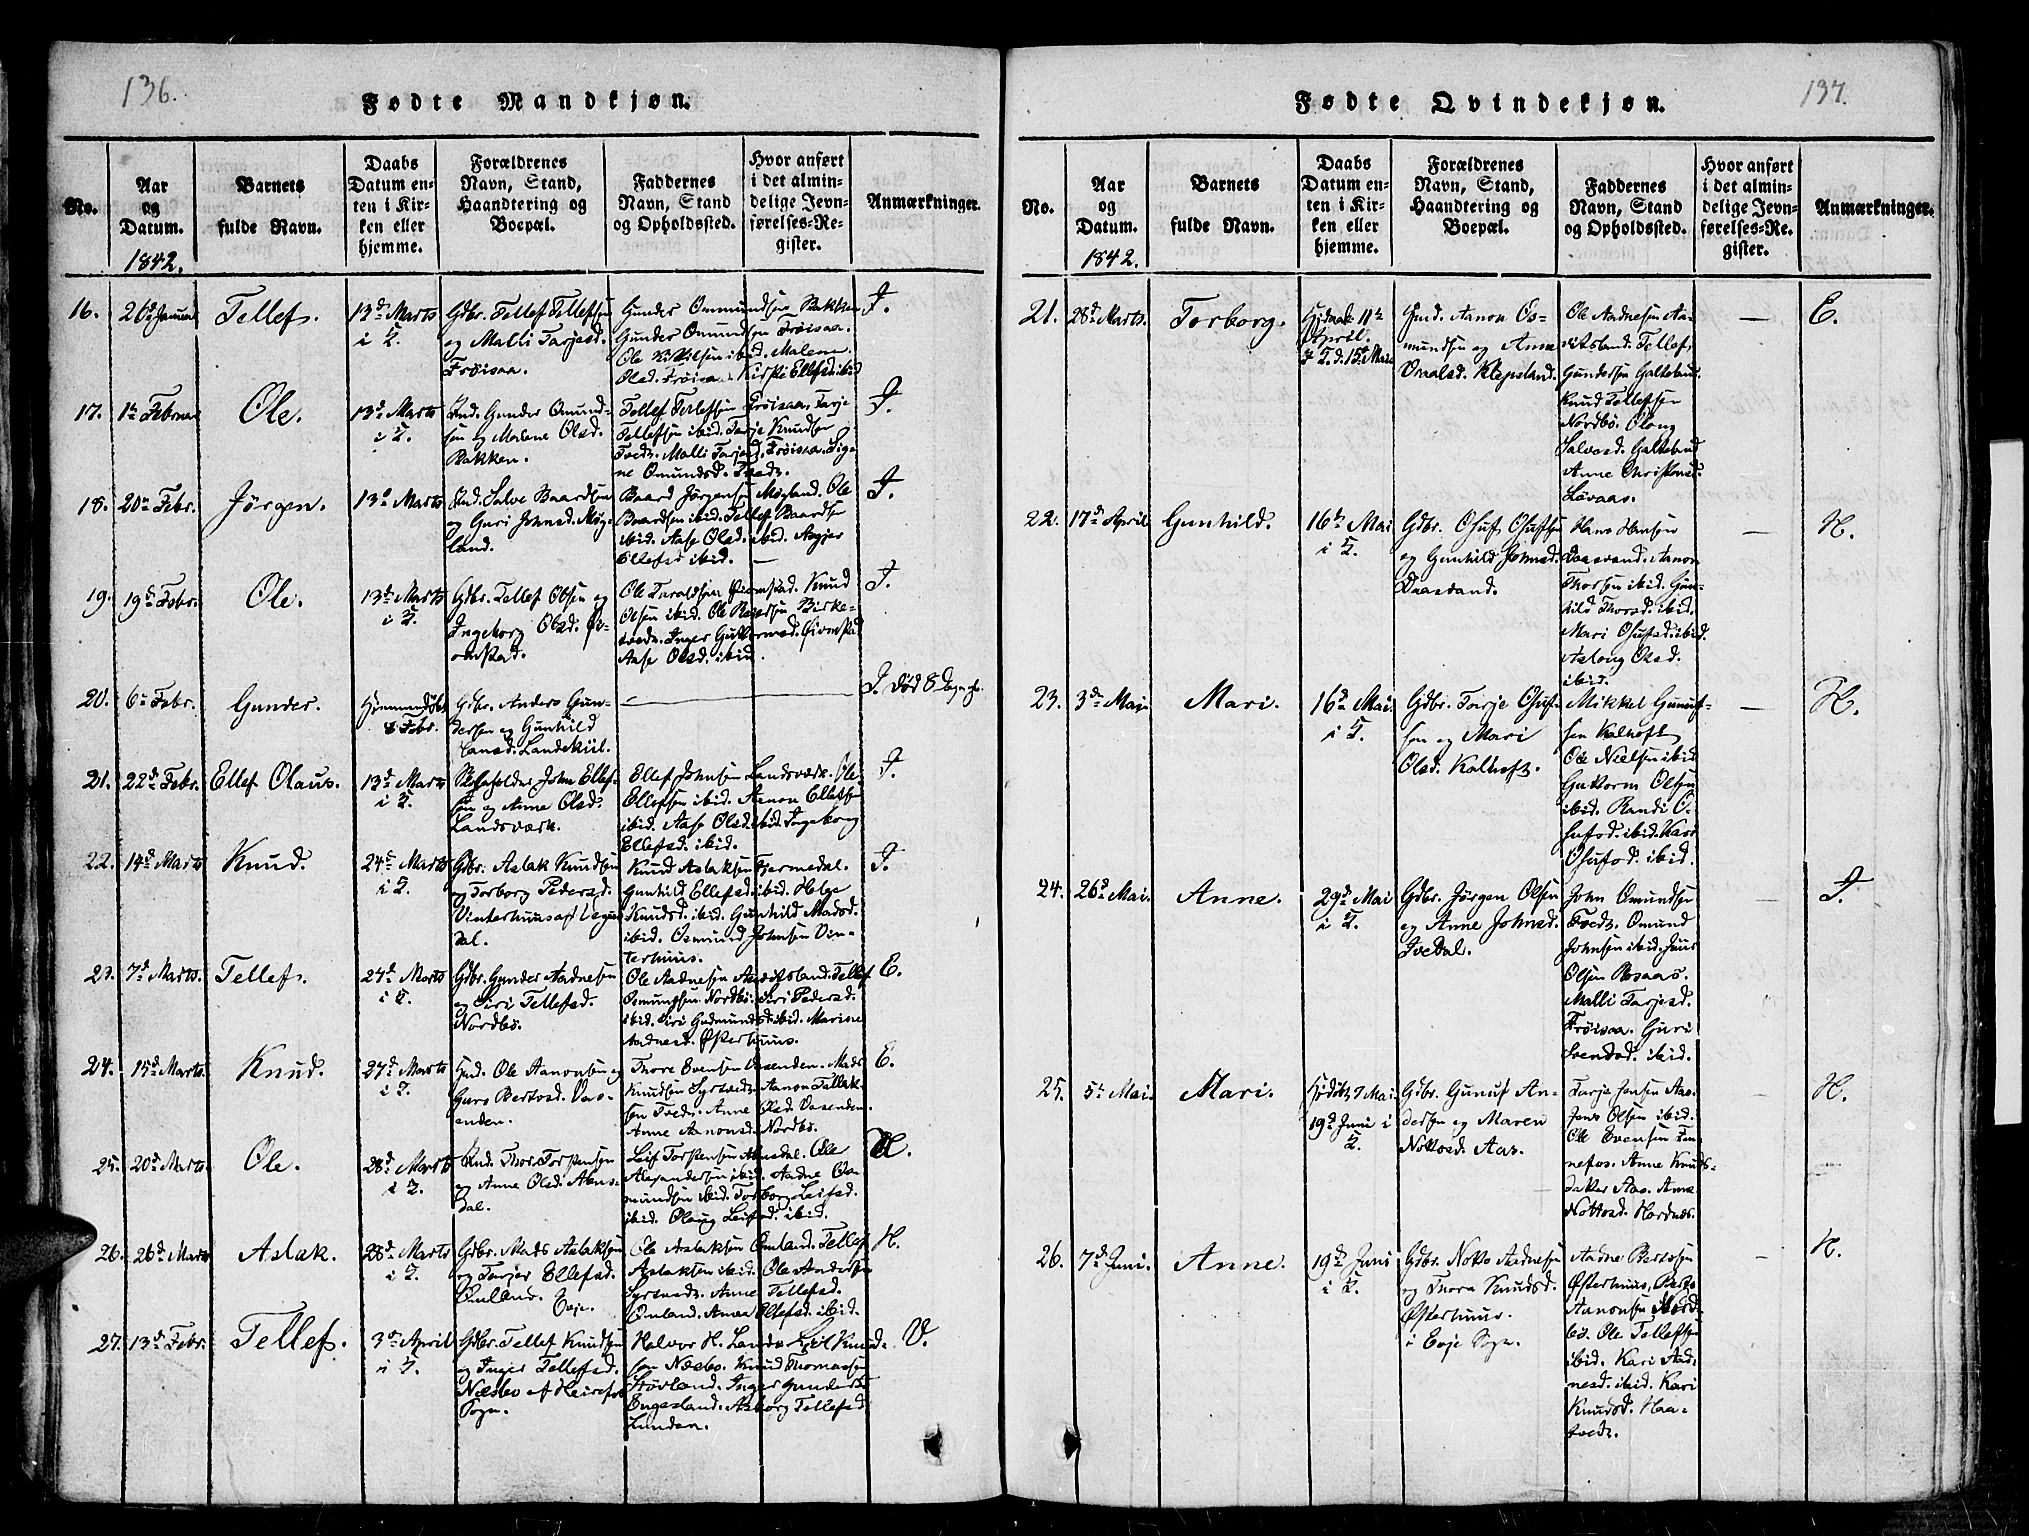 136.
Fødte Mandkjøn.
No.
Aar
og
Datum.
1842.
Barnets
fulde Navn.
Daabs
Datum en-
ten i Kir-
ken eller
hjemme.
Forældrenes
Navn, Stand,
Haandtering og
Boepæl.
Faddernes
Navn, Stand
og Opholdssted.
Hvor anført
i det almin-
delige Jevn-
førelses-Re-
gister.
Anmærkninger.
16.
Tellef.
13d Marts
i T.
Gdbr. Tellef Tellefsen
og Malli Tarjesd.
Frøisaa.
Gunder Ommundsen Bakken
Gunder Omundsen Frøisaa.
ibid. Malene
Olsd. Frøisaa. Kirsti Ellefsd. ibid
I.
17.
Ole.
13d Marts
i T.
Ind. Gunder Omund-
sen og Malene Olsd.
Bakken.
Tellef Tellefsen Frøisaa. Tarje
Tellefsen ibid. Tarje Knudsen
Tvedt. Malli Tarjesd. Frøisaa. Sig-
ne Omundsd. Tvedt.
I.
18.
20de Febr.
Jørgen.
13d Marts
Ind. Salve Baardsen
og Guri Johnsd. Møg-
land.
Baard Jørgensen Møgland. Ole
Baardsen ibid. Tellef Baardsen
ibid. Aase Olsd. ibid. Asgjer
Ellefsd ibid. —
I.
19.
19d Febr.
Ole.
13d Marts
i T.
Gdbr. Tellef Olsen og
Ingeborg Olsd.
Knud
Olsen ibid. Ole
Birke-
tvedt. Inger Guttormsd.
Aase Olsd. ibid.
I.
20.
6te Febr.
Gunder.
8 Febr.
Gdbr. Anders Gun-
dersen og Gunhild
Landskiil.
—
I. død 8 Dage gl.
21.
22d Febr.
Ellef Olaus.
13d Marts
i T.
Skoleholder John Ellef-
sen og Anne Olsd.
Landsværk.
Ellef Johnsen Landsværk. Ole
Ellefsen ibid. Aanon Ellefsen
ibid. Aase Olsd. ibid. Ingeborg
Ellefsd. ibid.
I.
22.
14d Marts
Knud.
24de Marts
i T.
Gdbr. Aslak Knudsen
og Torborg Pedersd.
Vinterhuus af Vegus-
dal.
Knud Aslaksen Fjermedal.
Gunhild Ellefsd. ibid. Helge
Knudsd. ibid. Gunhild Madsd.
ibid. Osmund Johnsen Vin-
terhuus.
I.
23.
7d Marts.
Tellef.
27d Marts
i E.
Gdbr. Gunder Aadnesen
og Siri Tellefsd.
Nordbø.
Ole Aadnesen Aavitsland. Tellef
Osmundsen Nordbø. Siri Pedersd.
ibid. Siri Gudmundsd. ibid. Marine
Aadnesd. Østerhuus.
E.
24.
15d Marts.
Knud.
27d Marts
i T.
Ole Aanonsen og
Guro Bertosd. Vas-
enden.
Thore Evensen Vasenden. Mads
Knudsen Syrtveit. Aanon Tellef-
sen Tvedt. Anne Olsd. Vasenden.
Anne Aanonsd. Nordbø.
E.
25.
20d Marts.
Ole.
28d Marts
i T.
Ind. Thor Torstensen
og Anne Olsd. Abus-
dal.
Leif Torstensen Abusdal. Ole
Alexandersen ibid. Aadne Os-
mundsen ibid. Torborg Leifsd.
ibid. Olaug Leifsd. ibid.
H.
26.
26d Marts
Aslak.
28d Marts
i T.
Gdbr. Mads Aslaksen
og Tarjer Ellefsd.
Omland. Evje.
Ole Aslaksen Omland. Tellef
Aslaksen ibid. Ole Andersen
Syrtvedt. Anne Tellefsd.
Omland. Anna Ellefsd. ibid.
H.
27.
13d Febr.
Tellef.
3die April
i T.
Gdbr. Tellef Knudsen
og Inger Tellefsd.
Næsbø af Heirefos
Sogn.
Halvor H. Landaas. Knud-
sen Næsbø. Knud Thomassen
Støvland. Inger Gundersd.
Engesland. Asborg Tellefsd.
Lunden.
V.
137.
Fødte Qvindekjøn.
No.
Aar
og
Datum.
1842.
Barnets
fulde Navn.
Daabs
Datum en-
ten i Kir-
ken eller
hjemme.
Forældrenes
Navn, Stand,
Haandtering og
Boepæl.
Faddernes
Navn, Stand
og Opholdssted.
Hvor anført
i det almin-
delige Jevn-
førelses-Re-
gister.
Anmærkninger.
21.
28d Marts.
Torborg.
11te
April.
i T. d. 15de Mai
Aanon Os-
mundsen og Anne
Klepsland.
Ole Aadnesen Aa-
vitsland. Tellef
Gundersen Galteland
Knud Tellefsen
Nordbø. Olaug
Salvesd. Galteland
Anne Christensd.
Løvaas.
—
E.
22.
17d April
Gunhild.
16de Mai
i T.
Gdbr. Osuf Osufsen
og Gunhild Johnsd.
Daasvand.
Hans Hansen
Daasvand. Aanon
Thorsen ibid. Gun-
hild Thorsd. ibid.
Mari Osufsd. ibid.
Aslaug Olsd.
ibid.
—
H.
23.
3die Mai
Mari.
16d Mai.
i T.
Gdbr. Tarje Osuf-
sen og Mari
Olsd. Kalhoft.
Mikkel Gunuf-
sen Kalhoft
Ole Nielsen ibid
Guttorm Olsen
ibid. Randi O-
sufsd. ibid. Kari
Osufsd. ibid.
—
H.
24.
26d Mai.
Anne.
29d Mai
i T.
Gdbr. Jørgen Olsen
og Anne Johnsd.
Ivedal.
John Omundsen
Tvedt. Omund
Johnsen ibid. Jens
Olsen Rosaas.
Malli Tarjesd.
Frøisaa. Guri
Svendsd. ibid.
—
I.
25.
5te Mai.
Mari.
7 Mai.
19d Juni i
T.
Gdbr. Gunuf An-
dersen og Maren
Nottosd. Aas.
Tarje Jensen Aas.
Jens Olsen ibid.
Ole Evensen Fen-
nefos. Anne Knuds-
datter Aas. Anne
Nottosd. Hordnæs.
—
H.
26.
7d Juni.
Anne.
19d Juni
i T.
Gdbr. Notto Aadnesen
og Thora Knudsd.
Østerhuus.
i Evje Sogn.
Aadne Bertosen
Østerhuus, Berto
Aanonsen Nord-
bø. Ole Tellefsen
ibid. Kari Aad-
nesd. ibid. Kari
Knudsd. Haa-
tvedt.
—
H.